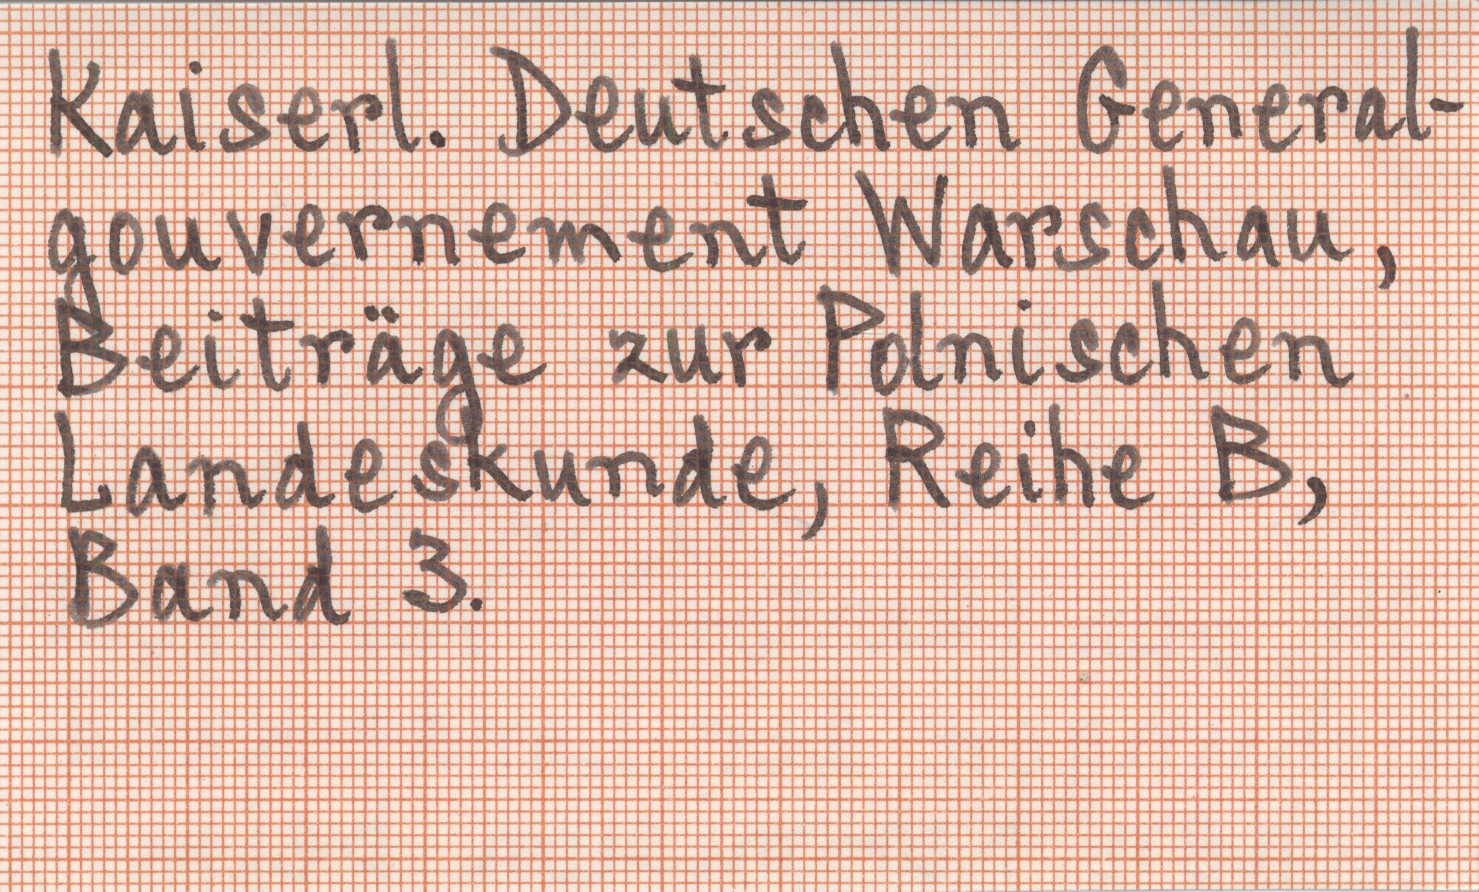 Kaiserl. Deutschen General-
gouvernement Warschau,
Beiträge zur Polnischen
Landeskunde, Reihe B,
Band 3.